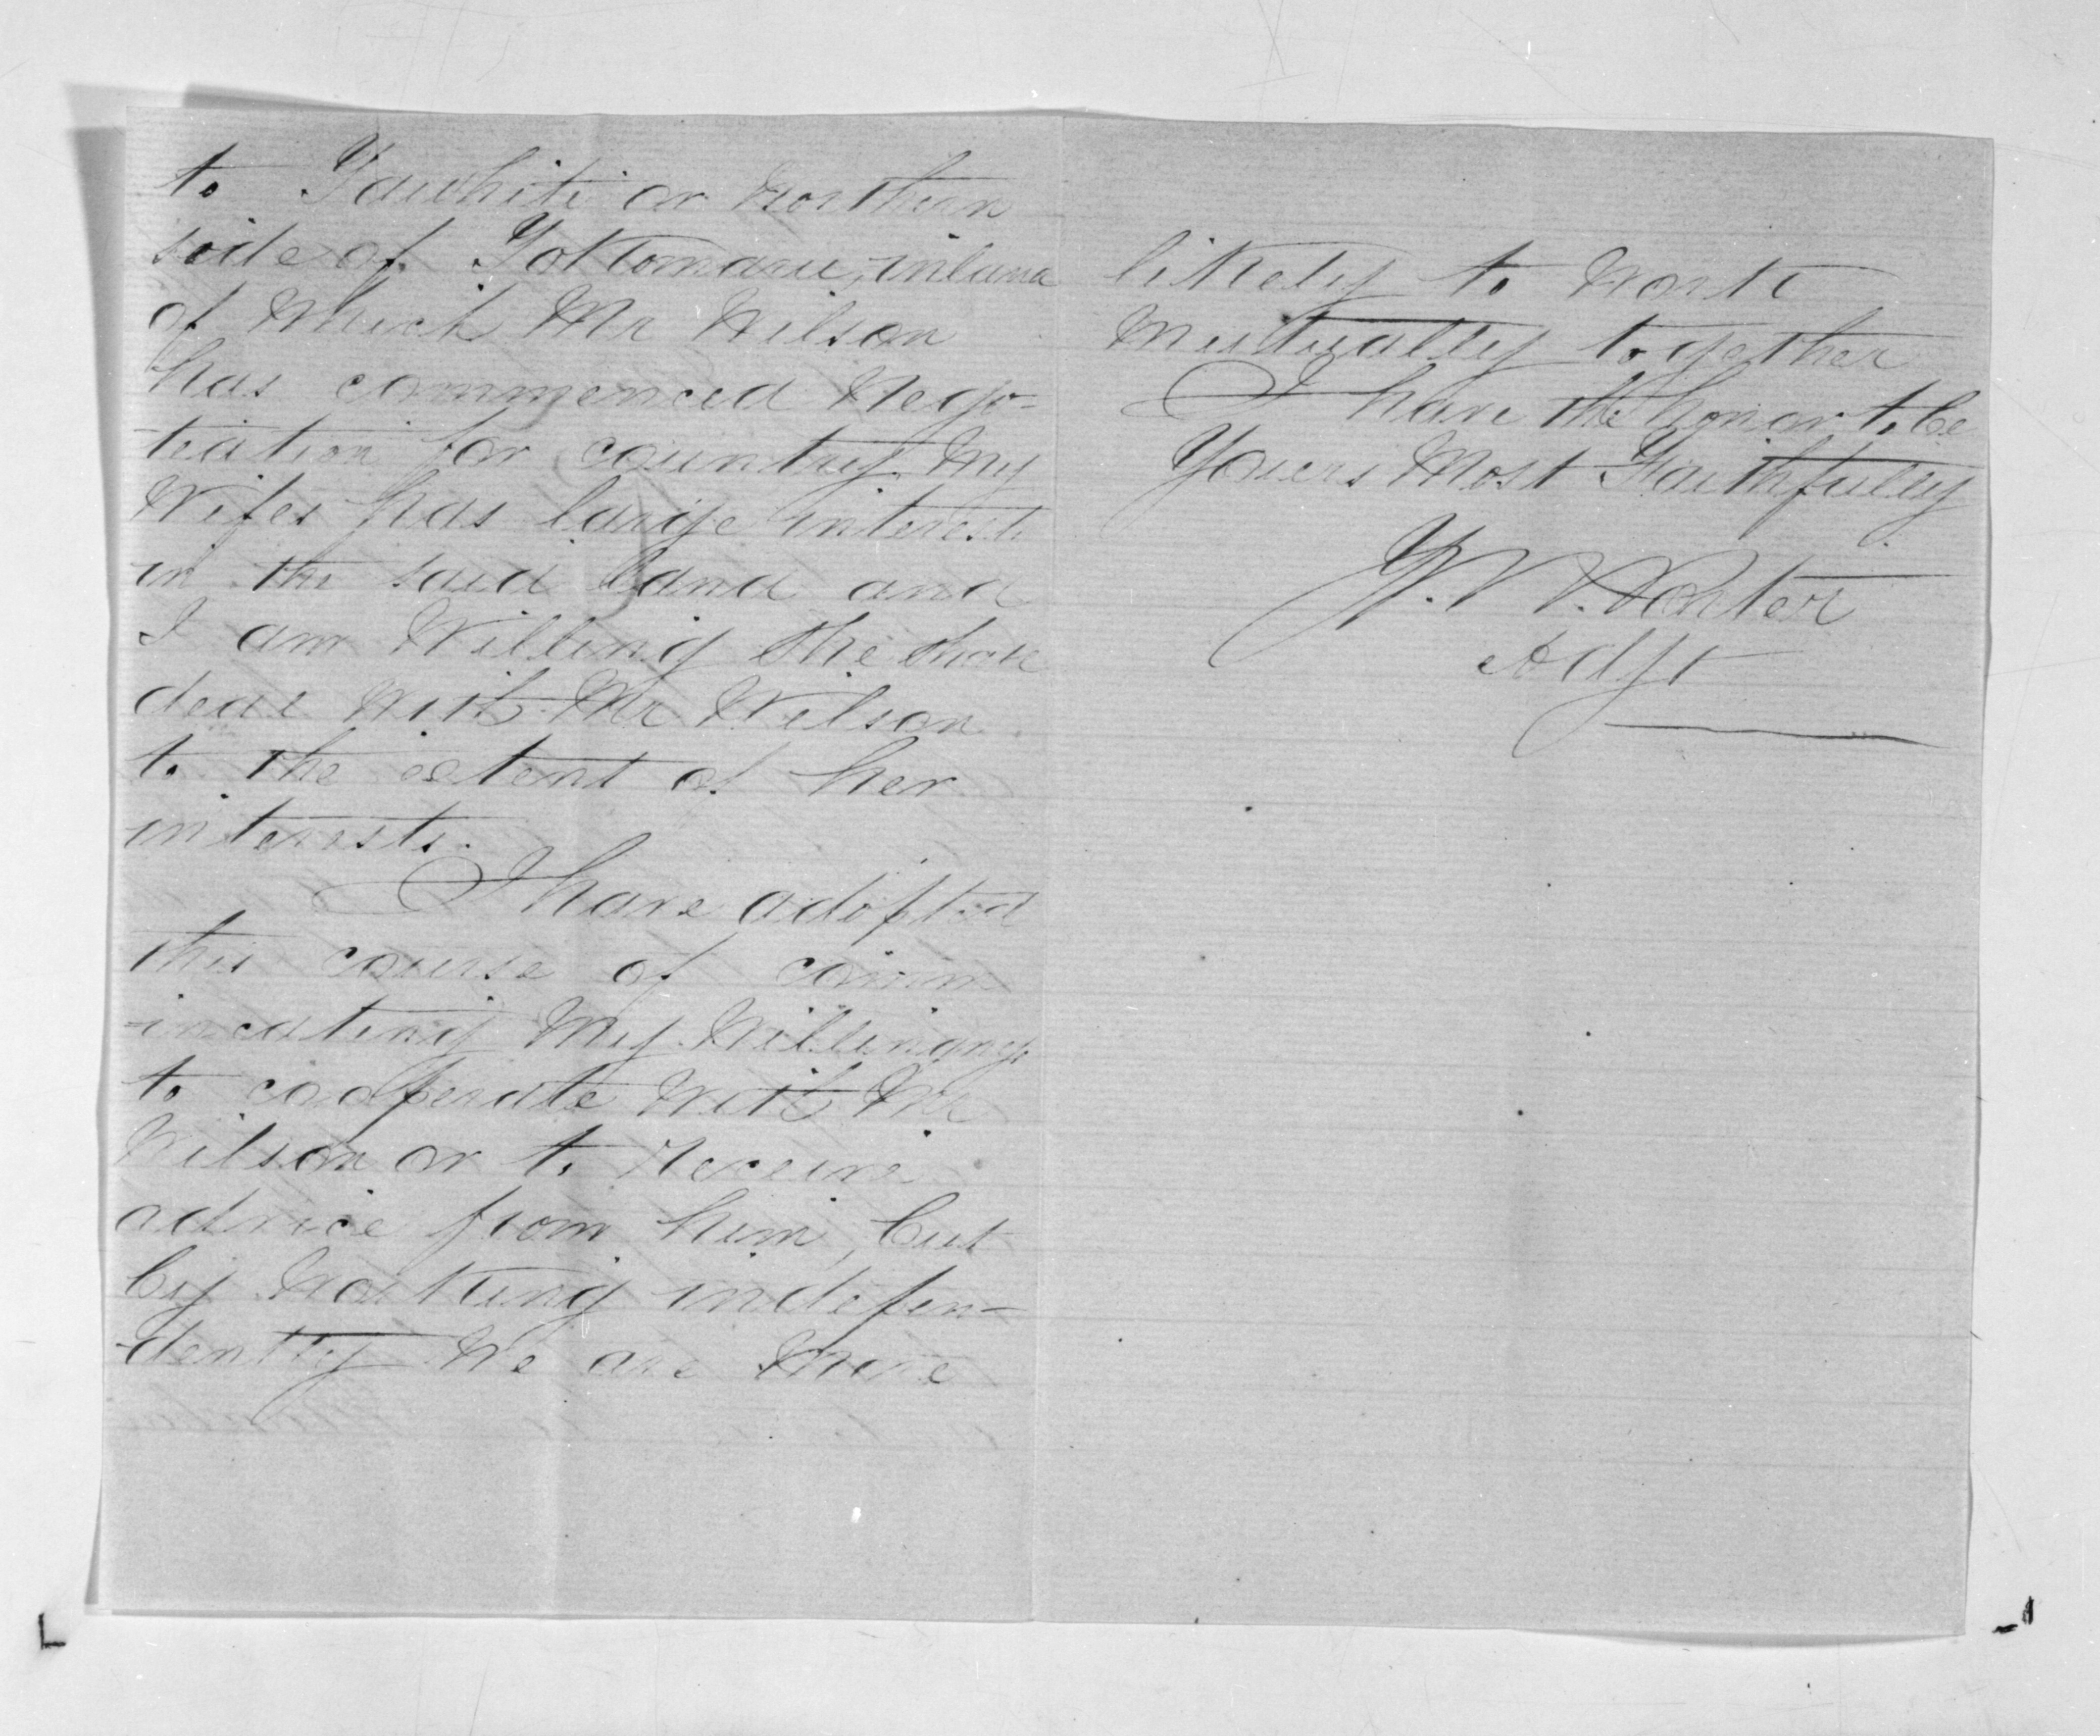 to Tawhiti or Northern
side of Tokomaru, inland
of Which Mr Wilson
has commenced Nego-
tiation for country. My
Wifes has large interests
in the said land and
I am Willing She
deal With Mr Wilson
to the extent of her
interests.
I have adopted
this course of comm
-incating My Willingnys
to cooperate With Mr
Wilson or to Receive
advice from him, but
by Working indepen-
-dently We are More
likely to Work
Mutually together
I have the honor to be
Yours Most Faithfully
J. W. Porter
Adjt